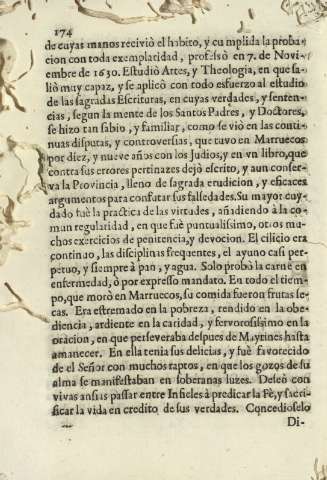 174
de cuyas manos reciviò el habito, y cumplida la proba-
cion con toda exemplaridad, professò en 7. de Novi-
embre de 1630. Estudiò Artes, y Theologia, en que sa-
liò muy capaz, y se aplicò con todo esfuerzo al estudio
de las sagradas Escrituras, en cuyas verdades, y senten-
cias, segun la mente de los Santos Padres, y Doctores,
se hizo tan sabio, y familiar, como se viò en las conti-
nuas disputas, y controversias, que tuvo en Marruecos
por diez, y nueve años con los Judios, y en vn libro, que
contra sus errores pertinazes dejò escrito, y aun conser-
va la Provincia, lleno de sagrada erudicion, y eficaces
argumentos para confutar sus falsedades. Su mayor cuy-
dado fuè la practica de las virtudes, añadiendo à la co-
mun regularidad, en que fuè puntualissimo, otros mu-
chos exercicios de penitencia, y devocion. El cilicio era
continuo, las disciplinas frequentes, el ayuno casi per-
petuo, y siempre à pan, y agua. Solo probò la carne en
enfermedad, ò por expresso mandato. En todo el tiem-
po, que morò en Marruecos, su comida fueron frutas se-
cas. Era estremado en la pobreza, rendido en la obe-
diencia, ardiente en la caridad, y fervorosissimo en la
oracion, en que perseveraba despues de Maytines hasta
amanecer. En ella tenia sus delicias, y fuè favorecido
de el Señor con muchos raptos, en que los gozos de su
alma se manifestaban en soberanas luzes. Deseò con
vivas ansias passar entre Infieles à predicar la Fè, y sacri-
ficar la vida en credito de sus verdades. Concedioselo
Di-